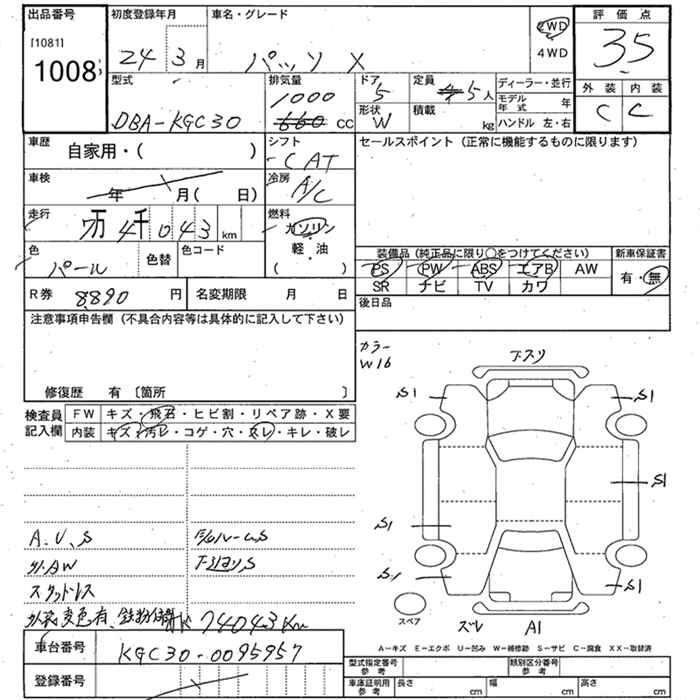 出品番号
[1081]
1008
初度登録年月
24 3 月
車名・グレード
パッソ X
2WD
4WD
評価点
35
外装 内装
C C
型式
DBA-KGC30
排気量
1000
660 CC
ドア
5
形状
W
定員
4 5人
積載
kg
ディーラー・並行
モデル年式 年
ハンドル 左・右
車歴
自家用・( )
シフト
CAT
セールスポイント (正常に機能するものに限ります)
車検
年 月( 日)
冷房
A/C
走行
7万 4千 0 4 3 km
燃料
ガソリン
軽・油
( )
色
パール
色替
色コード
装備品 (純正品に限り○をつけてください)
PS PW ABS エアB AW
SR ナビ TV カワ
新車保証書
有・無
R券 8890 円
名変期限 月 日
後日品
注意事項申告欄 (不具合内容等は具体的に記入して下さい)
修復歴 有 〔箇所 〕
カラー
W16
検査員
記入欄
FW キズ・飛石・ヒビ割・リペア跡・X要
内装 キズ・汚レ・コゲ・穴・スレ・キレ・破レ
A.U.S
外AW
スタッドレス
74043Km
車台番号 KGC30-0095957
登録番号
S1
S1
S1
S1
S1
S1
ズレ A1
スペア
A-キズ E-エクボ U-凹み W-補修跡 S-サビ C-腐食 XX-取替済
型式指定番号
参考
類別区分番号
参考
車庫証明用
参考
長さ cm
幅 cm
高さ cm